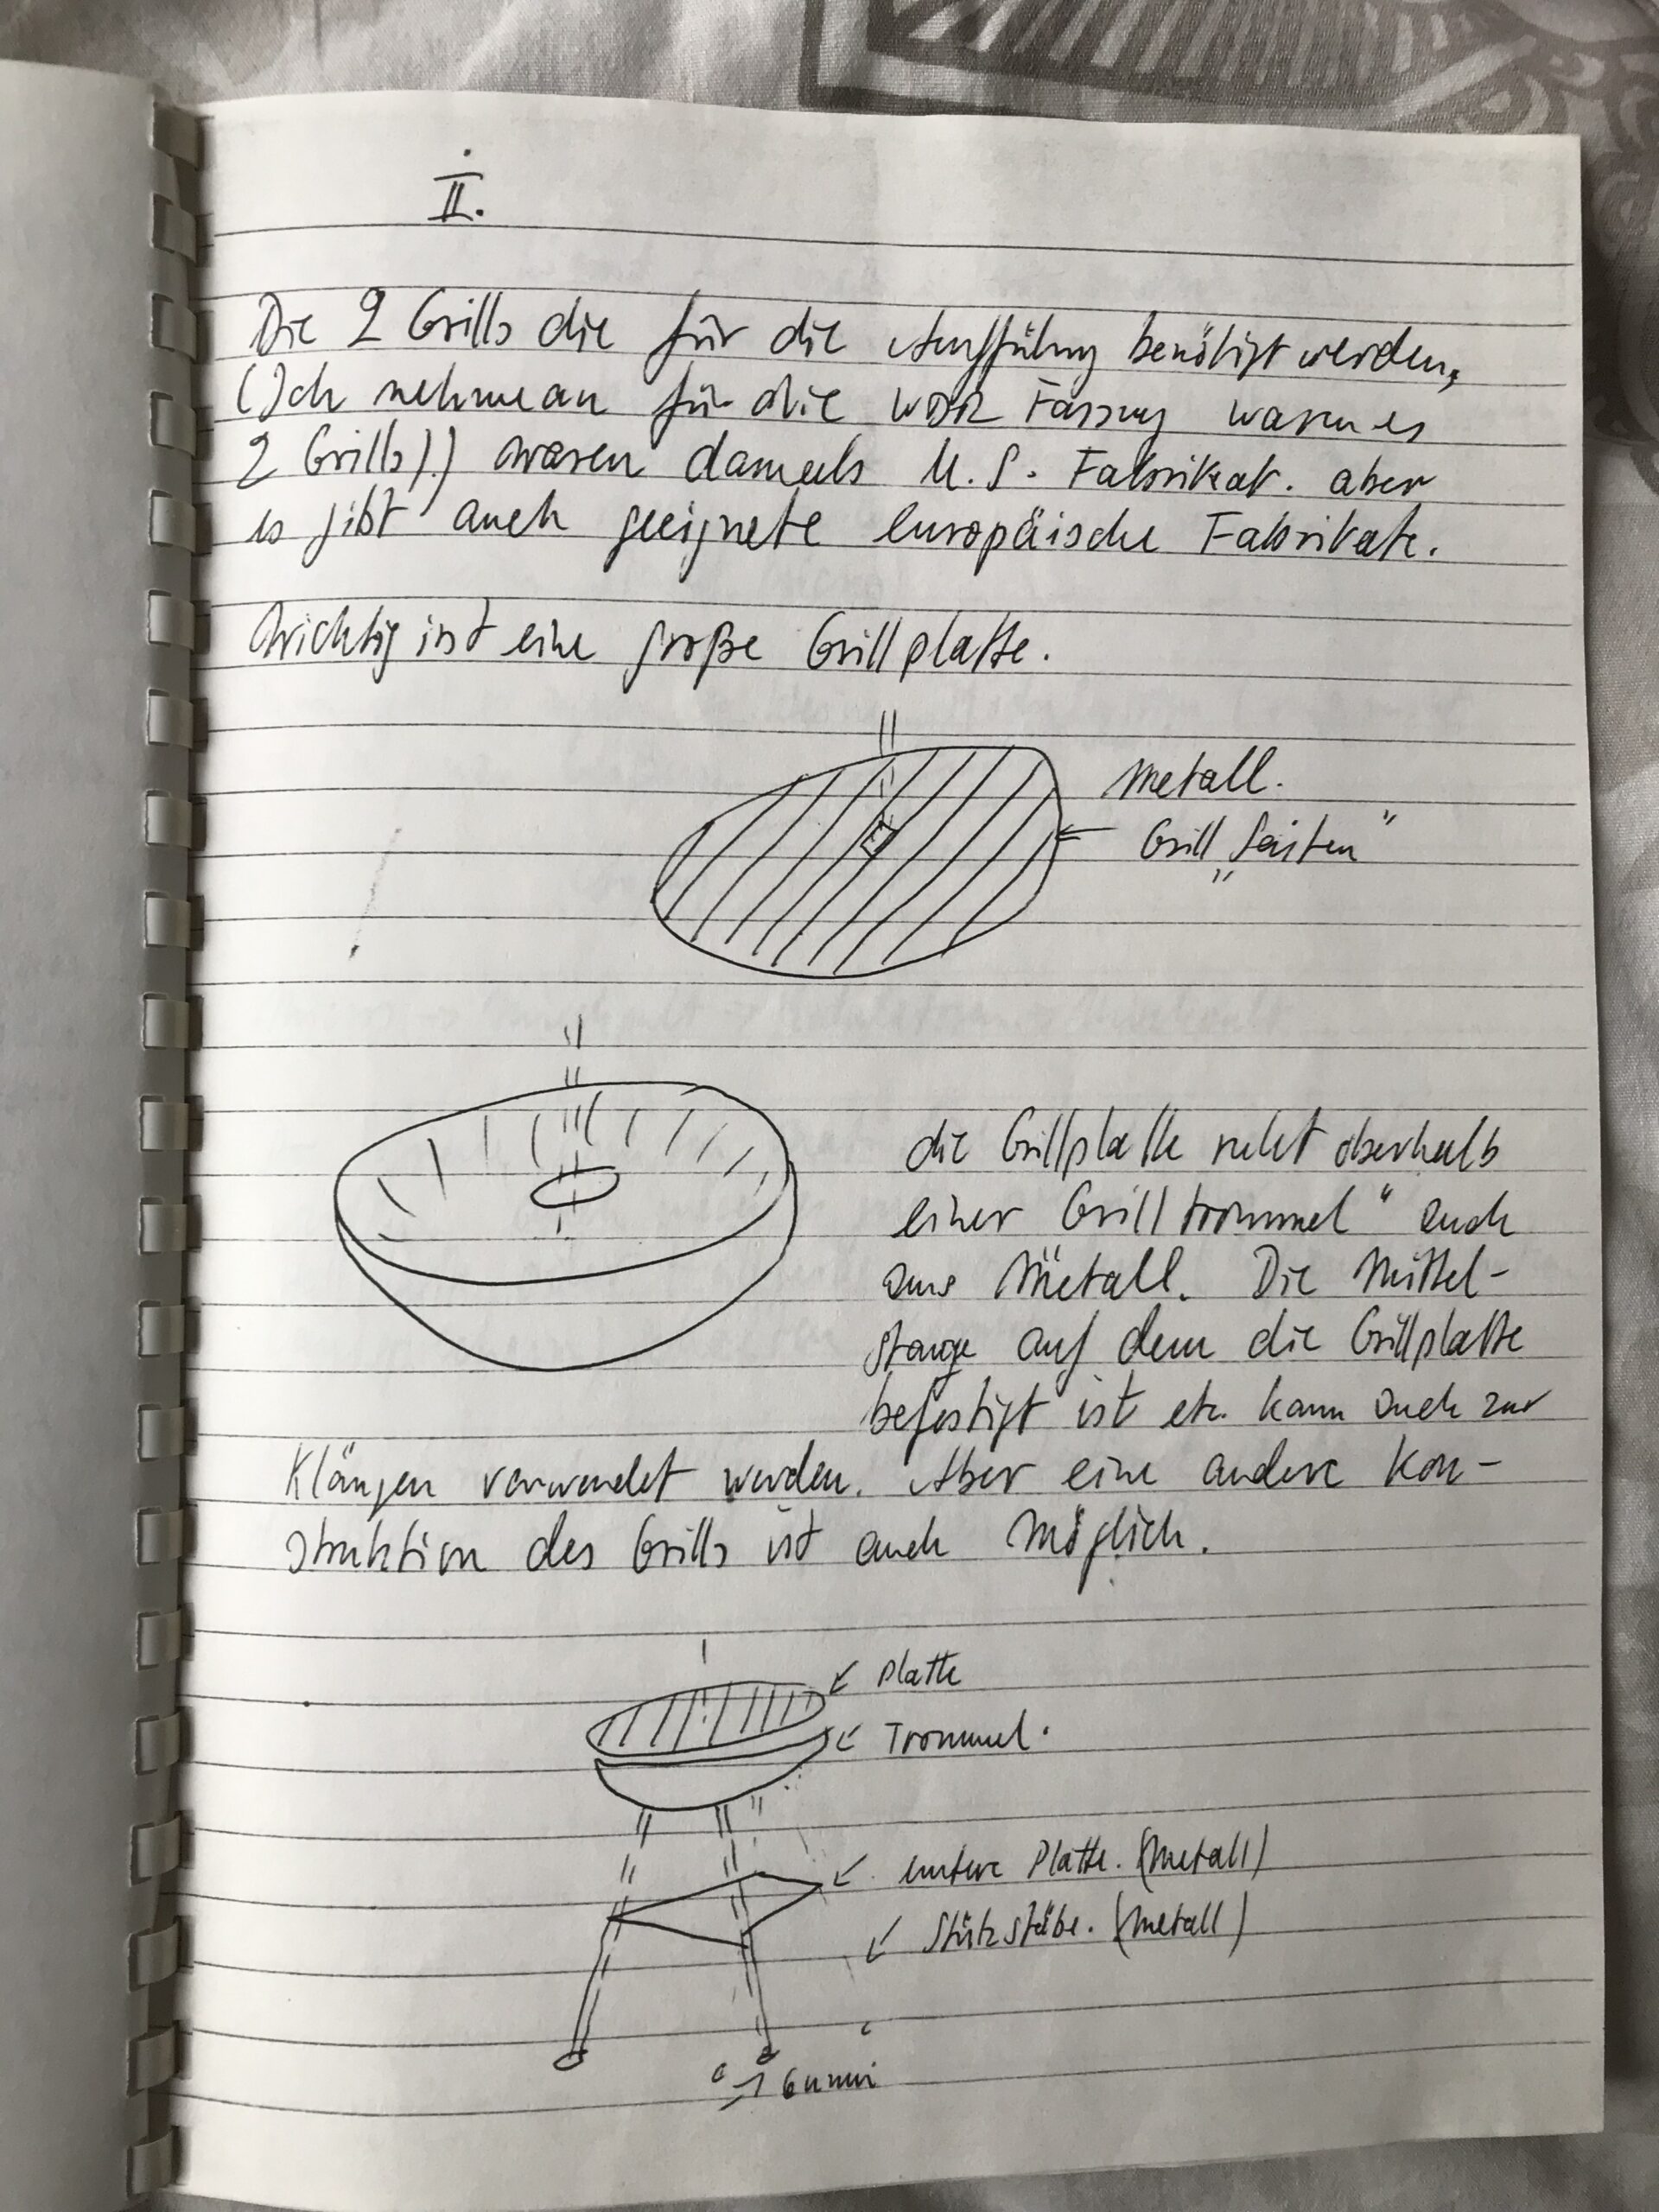 II.
Die 2 Grills die für die Aufführung benötigt werden,
(Ich nehme an für die WDR Fassung waren es
2 Grills!) waren damals U.S. Fabrikat. aber
es gibt auch geeignete europäische Fabrikate.
Wichtig ist eine große Grillplatte.
Metall.
Grill „Saiten“
die Grillplatte ruht oberhalb
einer Grilltrommel“ auch
aus Metall. Die Mittel-
stange auf dem die Grillplatte
befestigt ist etc. kann auch zur
Klängen verwendet werden. Aber eine andere Kon-
struktion des Grills ist auch möglich.
Platte
Trommel.
untere Platte. (Metall)
Stützstäbe. (Metall)
Gummi